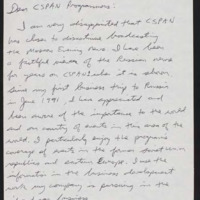 Dear CSPAN Programmers:
I am very disappointed that CSPAN
has chosen to discontinue broadcasting
the Moscow Evening news. I have been
a faithful viewer of the Russian news
for years on CSPAN 2 when it is shown.
Since my first business trip to Russia
in June 1991 I have appreciated and
been aware of the importance to the world
and our country of events in this area of the
world. I particularly enjoy the programs
coverage of events in the former Soviet Union
republics and eastern Europe. I use the
information in the business development
work my company is pursuing in the